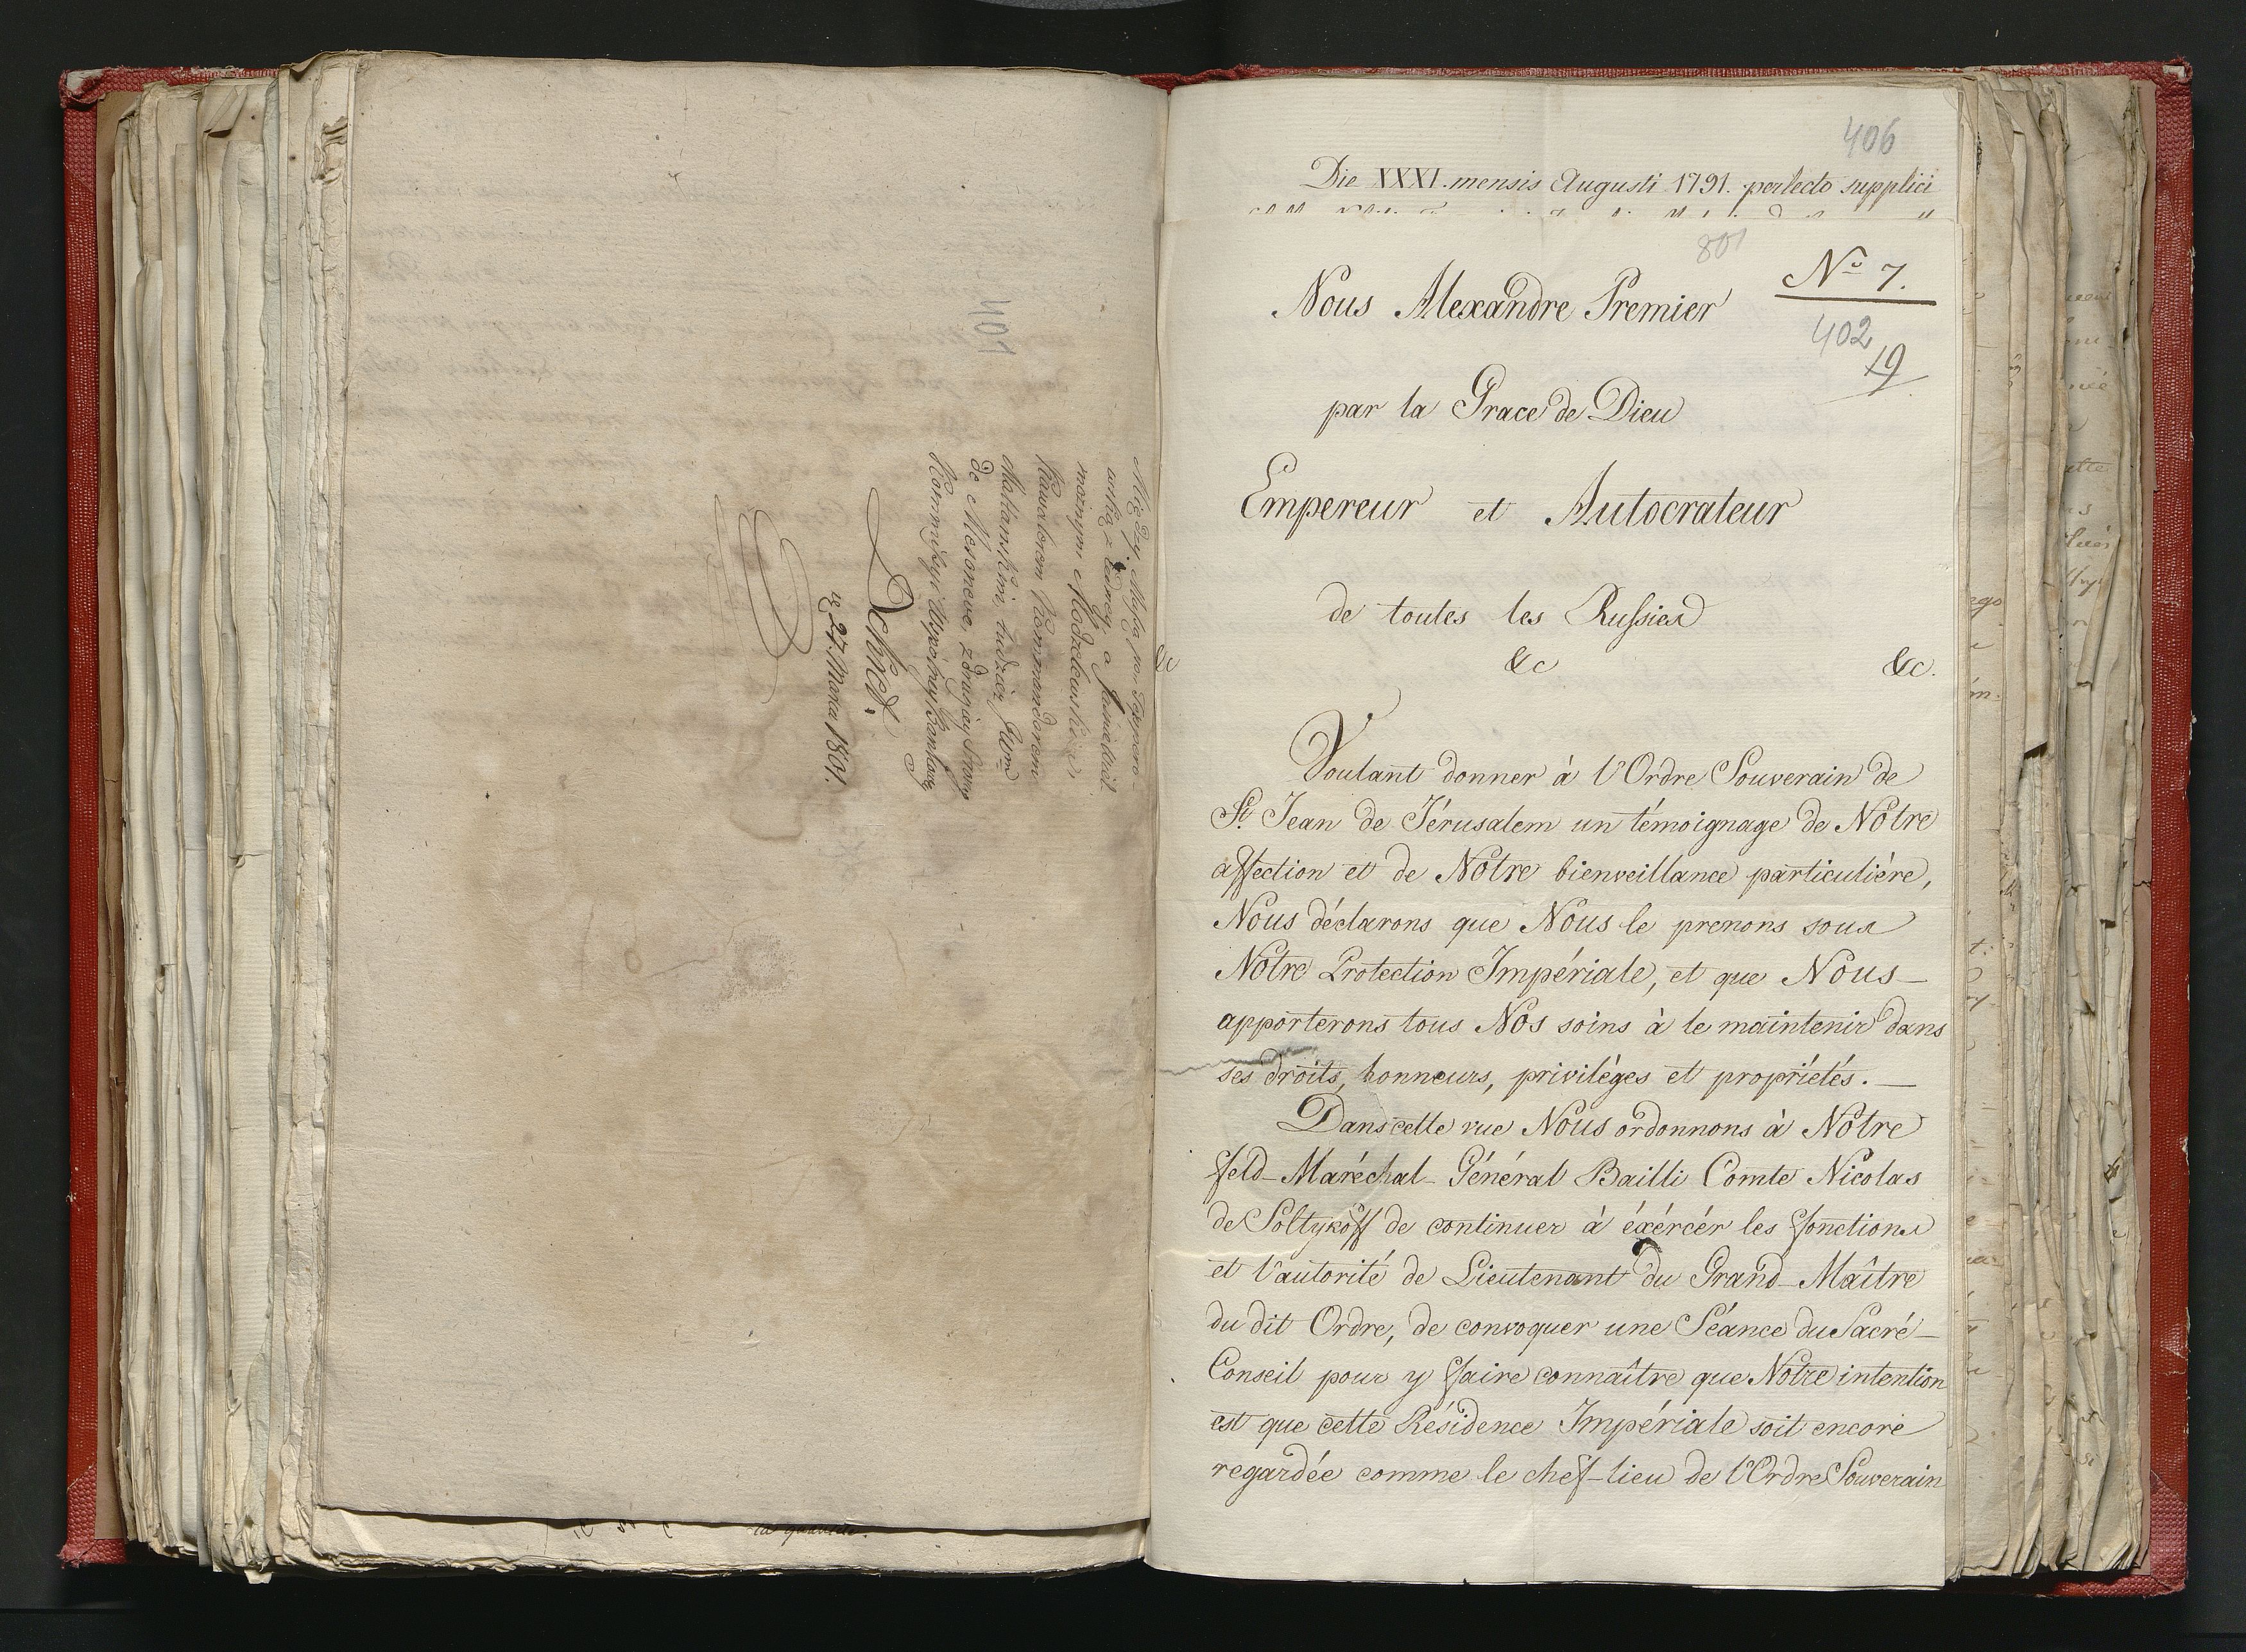 401
Między Massą po-Teppero-
wską z iedney, a Jaśnie Wiel.
możnym Modzelewskim,
Kawalerem Kommandorem
Maltańskim, tudzież Jwm
de Meroneue, z drugiey strony
Kommissyi Upadłey Bankowey
Dekret.
27. Marca 1801.
la quantité.
406
Die XXXI. mensis Augusti 1791. perlecto supplici
801
No 7.
Nous Alexandre Premier
402
19
par la Grace de Dieu
Empereur et Autocrateur
de toutes les Russies
&c &c &c.
Voulant donner à l'Ordre Souverain de
St. Jean de Jérusalem un témoignage de Nôtre
affection et de Nôtre bienveillance particuliére,
Nous déclarons que Nous le prenons sous
Nôtre Protection Impériale, et que Nous
apporterons tous Nos soins à le maintenir dans
ses droits, honneurs, privilèges et propriétés.
Dans cette vue Nous ordonnons à Nôtre
feld-Maréchal-Général Bailli Comte Nicolas
de Soltykoff de continuer à éxércér les fonctions
et l'autorité de Lieutenant du Grand-Maître
du dit Ordre, de convoquer une Séance du Sacré-
Conseil pour y faire connaître que Nôtre intention
est que cette Résidence Impériale soit encore
regardée comme le chef-lieu de l'Ordre Souverain